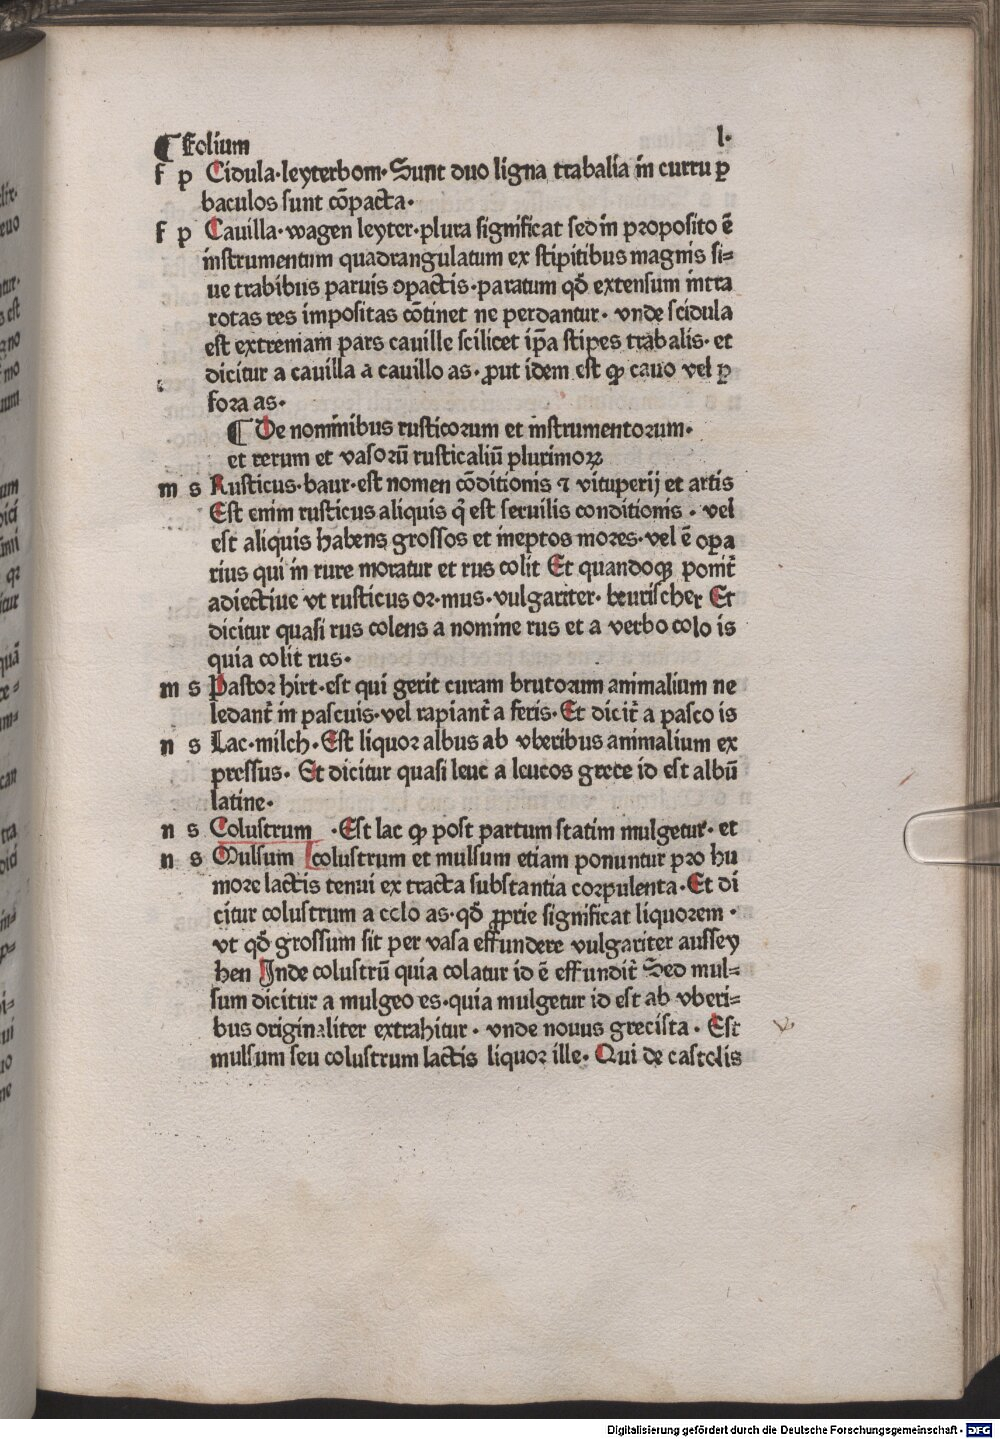 ¶ Folium l.
f p Cidula·leyterbom·Sunt duo ligna trabalia in curru ꝑ
baculos sunt cōpacta·
f p Cauilla·wagen leyter·plura significat sed in proposito ē
instrumentum quadrangulatum ex stipitibus magnis si⸗
ue trabibus paruis opactis·paratum qđ extensum intra
rotas res impositas cōtinet ne perdantur· vnde scidula
est extremam pars cauille scilicet ip̄a stipes trabalis· et
dicitur a cauilla a cauillo as· ꝓut idem est ꝙ cauo vel ꝑ
fora as·
¶ De nominibus rusticorum et instrumentorum·
et rerum et vasorū rusticaliū plurimoꝝ
m s Rusticus·baur·est nomen cōditionis ⁊ vituperij et artis
Est enim rusticus aliquis q̄ est seruilis conditionis · vel
est aliquis habens grossos et ineptos mores·vel ē opa
rius qui in rure moratur et rus colit Et quandoqꝫ ponit̄
adiectiue vt rusticus or·mus·vulgariter· beurischer Et
dicitur quasi rus colens a nomine rus et a verbo colo is
quia colit rus·
m s Pastor hirt·est qui gerit curam brutorum animalium ne
ledant̄ in pascuis·vel rapiant̄ a feris·Et dicit̄ a pasco is
n s Lac·milch·Est liquor albus ab vberibus animalium ex
pressus· Et dicitur quasi leuc a leucos grece id est albū
latine·
n s Colustrum ·Est lac ꝙ post partum statim mulgetur· et
n s Mulsum colustrum et mulsum etiam ponuntur pro hu
more lactis tenui ex tracta substantia corpulenta·Et di
citur colustrum a colo as·qđ ꝓprie significat liquorem ·
vt qđ grossum sit per vasa effundere vulgariter aussey
hen Inde colustrū quia colatur id ē effundit̄ Sed mul⸗
sum dicitur a mulgeo es·quia mulgetur id est ab vberi⸗
bus originaliter extrahitur · vnde nouus grecista · Est
mulsum seu colustrum lactis liquor ille· Qui de castolis
Digitalisierung gefördert durch die Deutsche Forschungsgemeinschaft - DFG